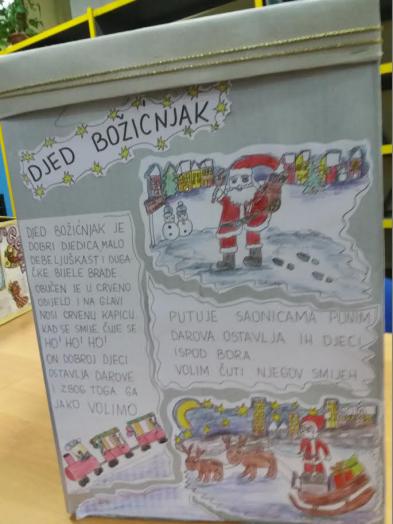 DJED BOŽIĆNJAK
DJED BOŽIĆNJAK JE
DOBRI DJEDICA, MALO
DEBELJUŠKAST I DUGA
ČKE BIJELE BRADE
OBUČEN JE U CRVENO
ODIJELO I NA GLAVI
NOSI CRVENU KAPICU.
KAD SE SMIJE, ČUJE SE
HO! HO! HO!
ON DOBROJ DJECI
OSTAVLJA DAROVE
I ZBOG TOGA GA
JAKO VOLIMO
PUTUJE SAONICAMA PUNIM
DAROVA OSTAVLJA IH DJECI
ISPOD BORA.
VOLIM ČUTI NJEGOV SMIJEH